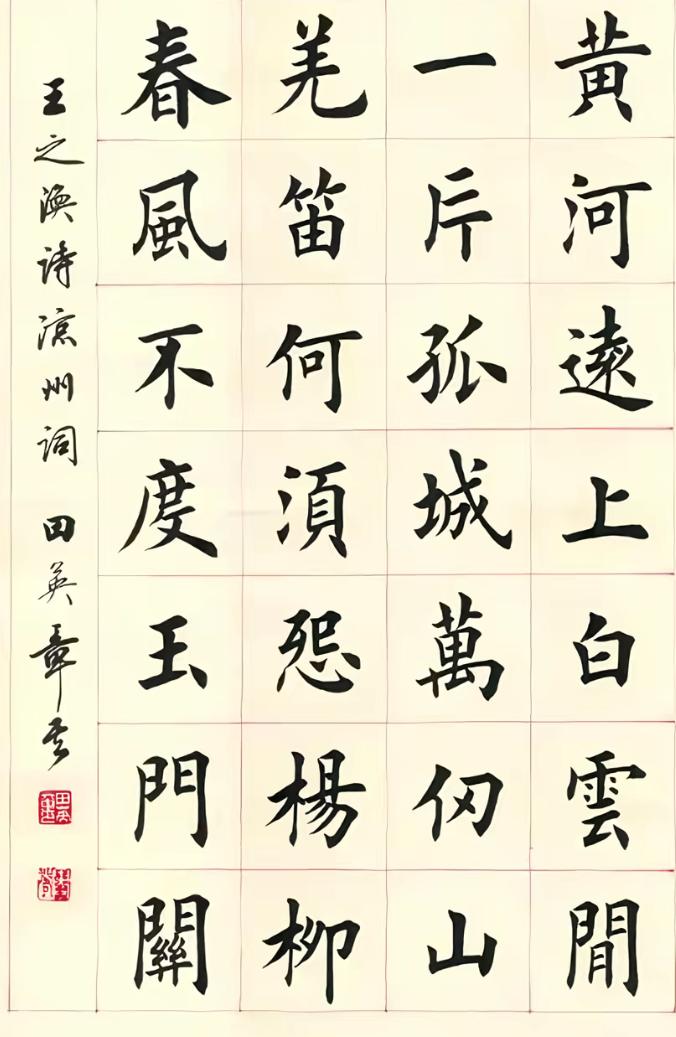 黄河遠上白雲間
一片孤城萬仞山
羌笛何須怨楊柳
春風不度玉門關
王之渙詩涼州詞 田英章書